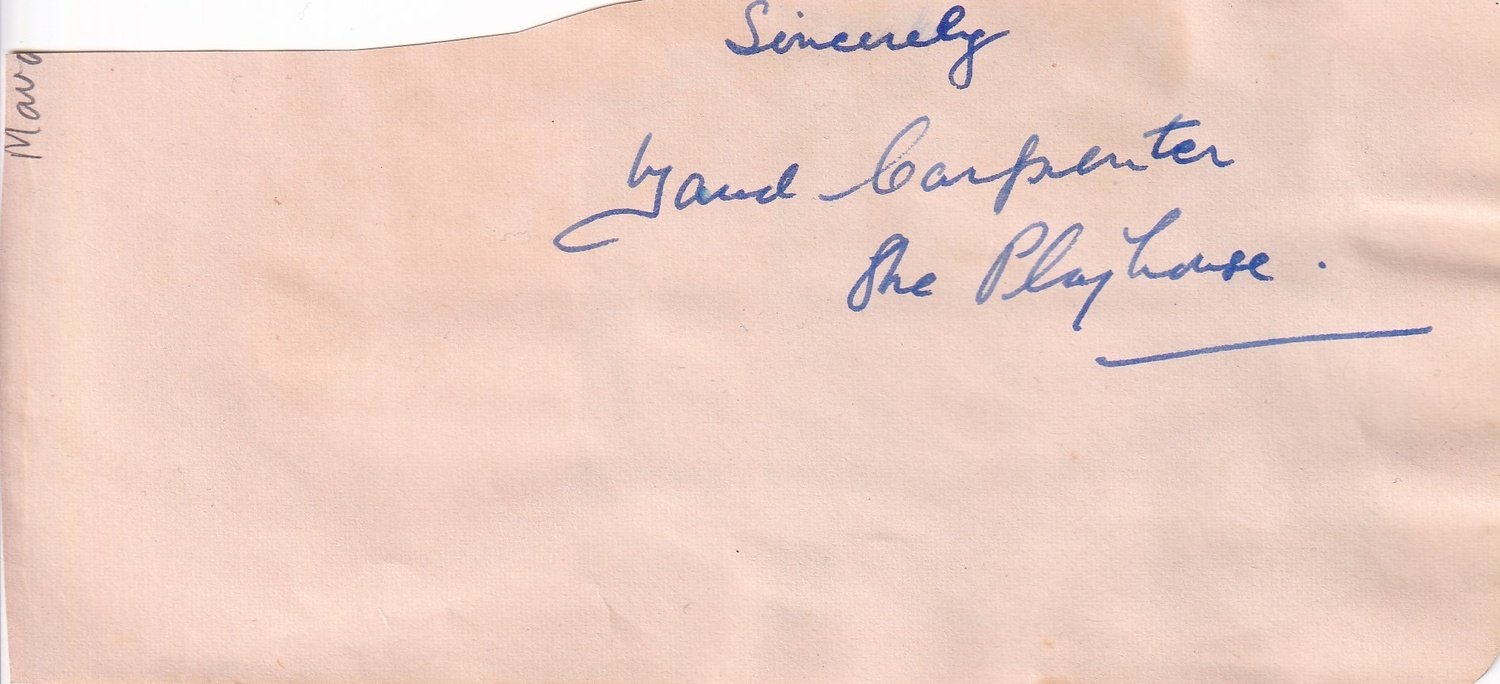 Sincerely
Maud Carpenter
The Playhouse .